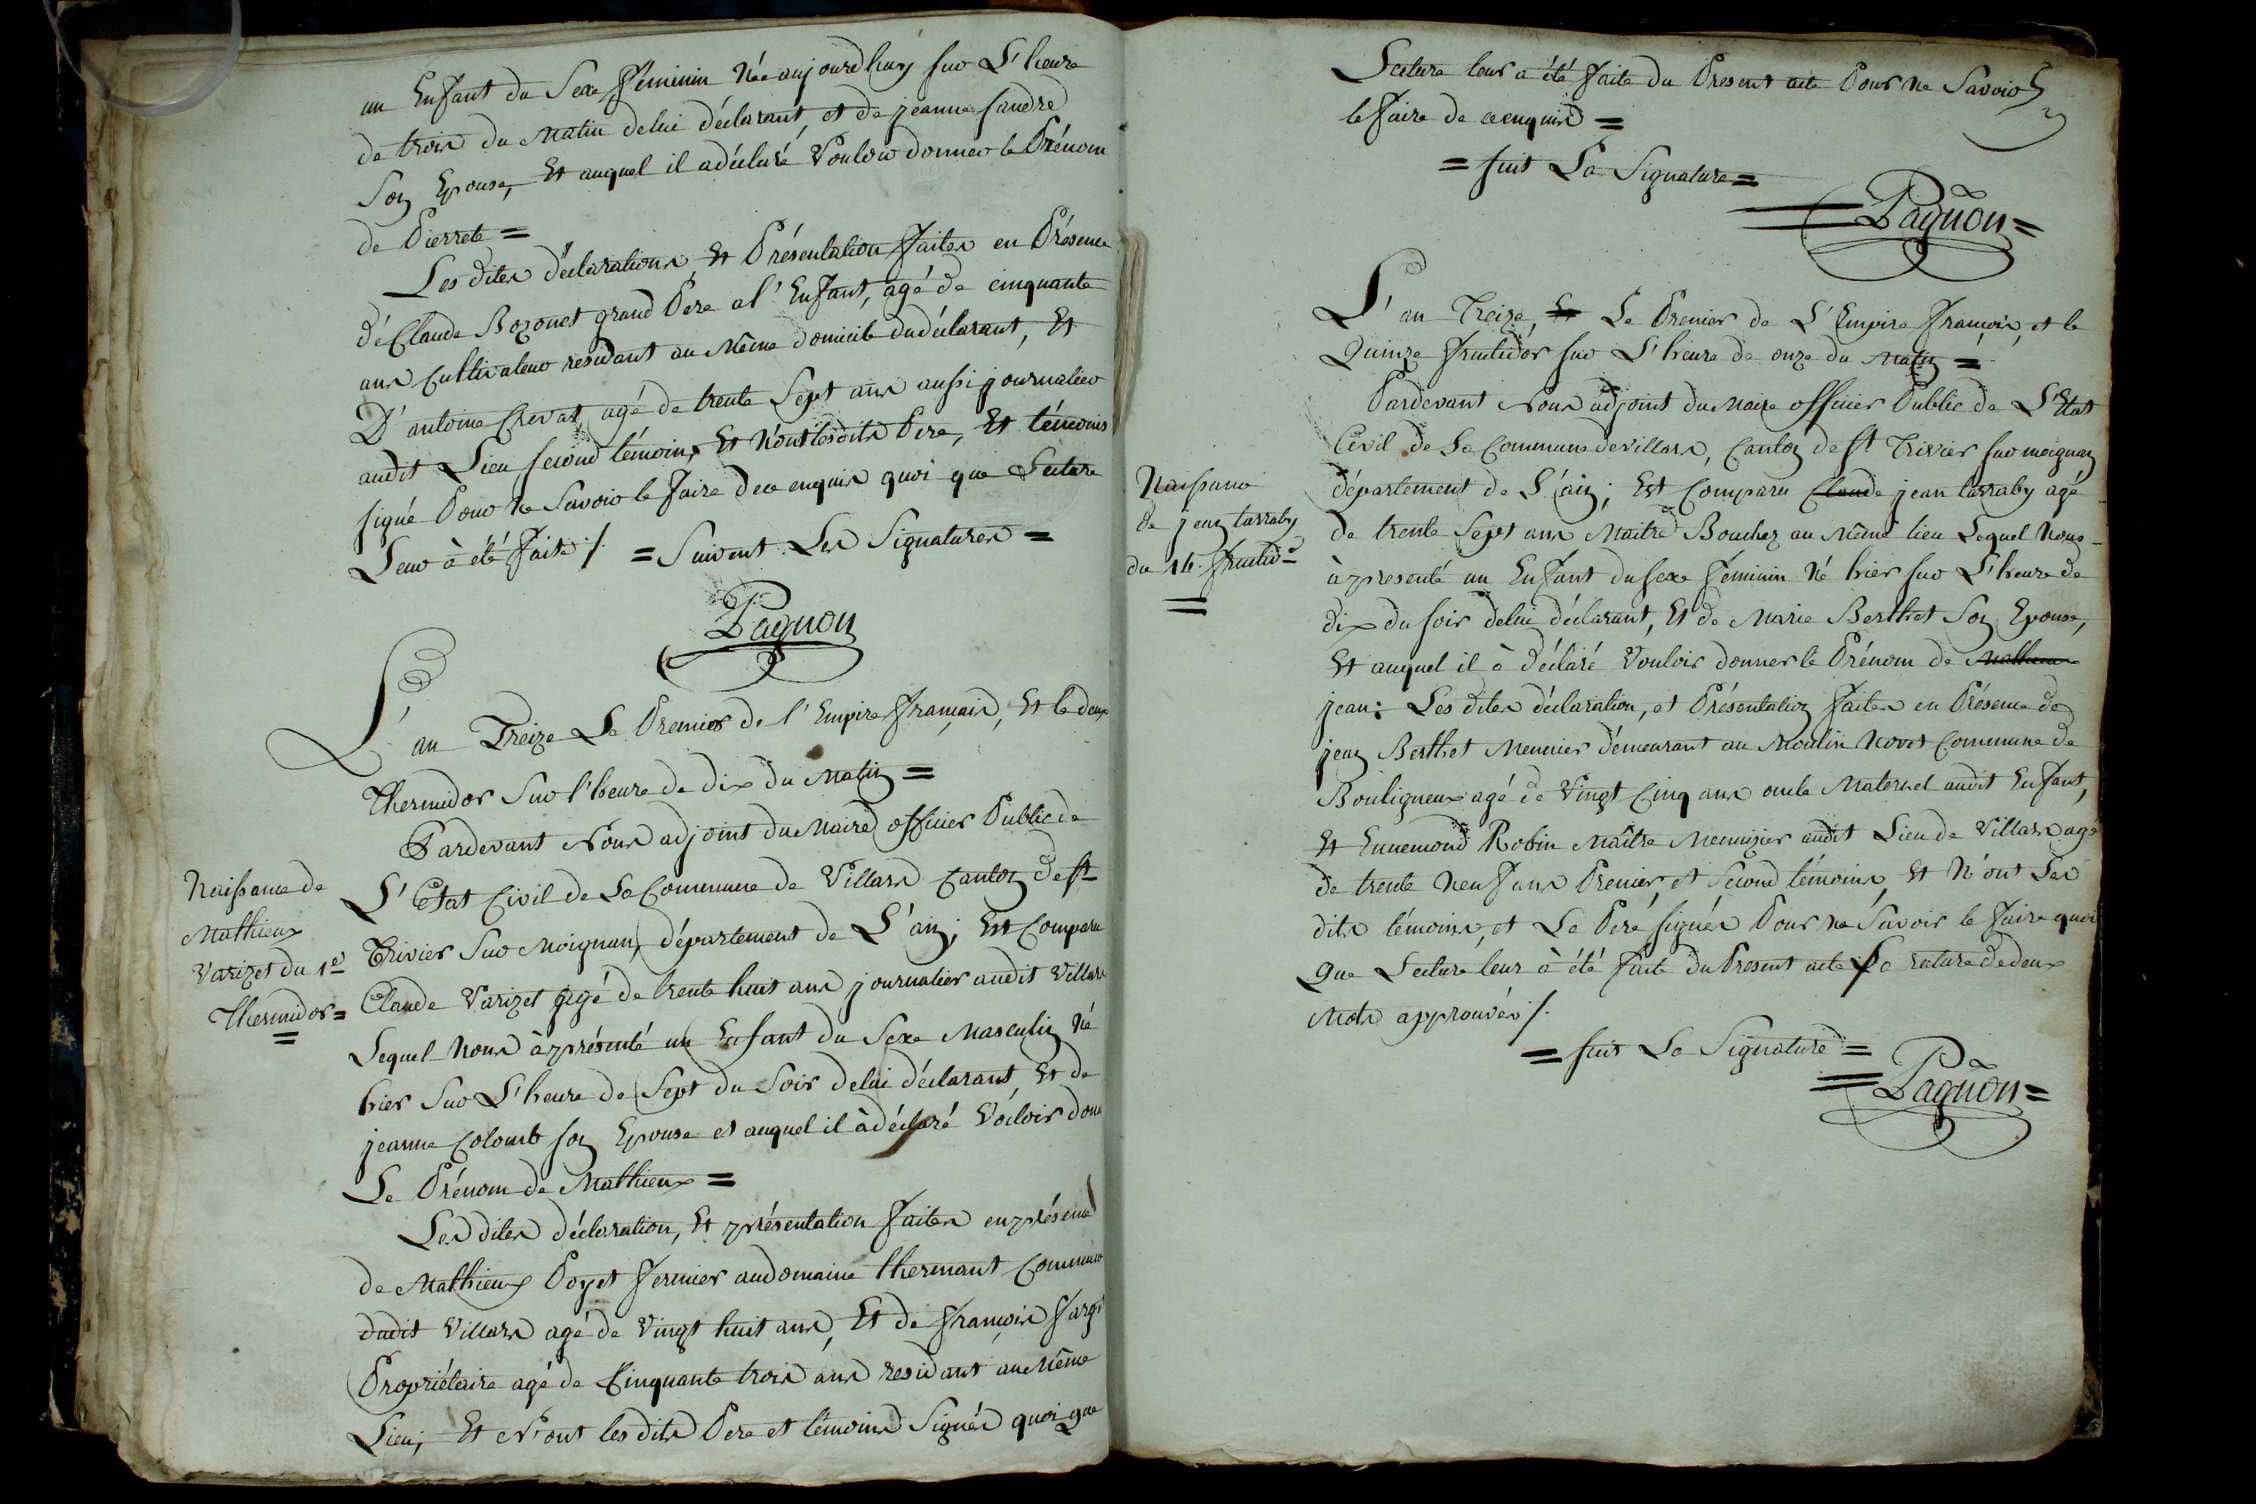 un Enfant du Sexe féminin Née aujourdhuy sur L'heure
de trois du Matin delui déclarant, et de jeanne fandre
Son Epouse, Et auquel il a déclaré Vouloir donner le Prénom
de Pierrete =
Les dites déclarations Et Présentation faites en Présence
de Claude Bozonet grand Pere a l'Enfant, agé de cinquante
ans Cultivateur residant au Même domicile du déclarant, Et
D'antoine Crevat, agé de trente Sept ans aussi journalier
audit Lieu second témoins, Et N'ont lesdits Pere, Et témoins
signé Pour Ne Savoir le faire de ce enquis quoi que Lecture
Leur à été faite ./. = Suivent Les Signatures =
Pagnon
L'an Treize Le Premier de l'Empire français, Et le deux
Thermidor Sur l'heure de dix du Matin =
Pardevant Nous adjoint du Maire officier Public de
Naissance de
Mathieux
Varizet du 1er
Thermidor =
L'Etat Civil de La Commune de Villars Canton de St
Trivier Sur Moignan, département de L'ain; Est Comparu
Claude Varizet agé de trente huit ans journalier audit Villars
Lequel Nous à présenté un Enfant du Sexe Masculin Né
hier Sur L'heure de Sept du Soir delui déclarant, Et de
jeanne Colomb son Epouse et auquel il à déclaré Vouloir don
Le Prénom de Mathieux =
Les dites déclaration, Et présentation faites en présence
de Mathieux Poyet fermier au domaine thermant Commune
dudit Villars agé de Vingt huit ans, Et de françois farge
Propriétaire agé de Cinquante trois ans residant au Même
Lieu; Et N'ont les dits Pere et témoins Signés quoi que
Lecture leur a été faite du Present acte Pour Ne Savoir
le faire de ce enquis =
= suit La Signature =
Pagnon =
L'an Treize, Et Le Premier de L'Empire françois, et le
Quinze fructidor sur L'heure de onze du Matin =
Pardevant Nous adjoint du Maire officier Public de L'Etat
Civil de La Commune de Villars, Canton de St Trivier sur moignan
Naissance
de jean tarraby
du 14 fructidor
=
département de L'ain; Est Comparu Claude jean tarraby agé
de trente Sept ans Maitre Boucher au Même lieu Lequel Nous
à présenté un Enfant du sexe féminin Né hier sur L'heure de
dix du soir delui déclarant, Et de Marie Berthet Son Epouse,
Et auquel il à déclaré Vouloir donner le Prénom de Mathieux
jean: Les dites déclaration, et Présentation faites en Présence de
jean Berthet Meunier demeurant au Moulin Novet Commune de
Bouligneux agé de Vingt Cinq ans oncle Maternel audit Enfant,
Et Ennemond Robin Maître Menuizier audit Lieu de Villars agé
de trente Neuf ans Premier, et second témoins, Et N'ont Les
dits témoins, et Le Pere signés Pour ne Savoir le faire quoi
que Lecture leur à été faite du Present acte La rature de deux
Mots approuvés ./.
= suit La Signature =
Pagnon =